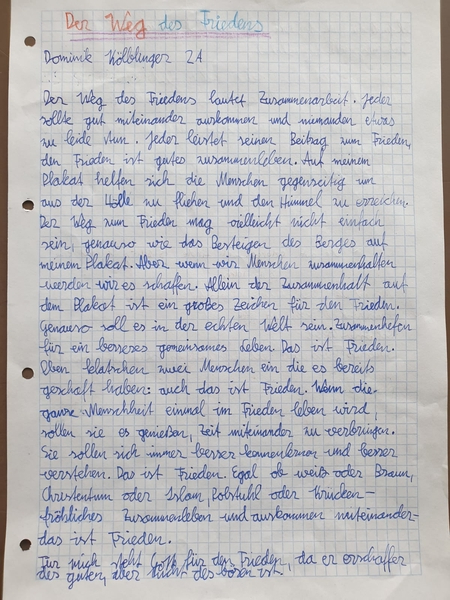 Der Weg des Friedens
Dominik Kölblinger 2A
Der Weg des Friedens lautet Zusammenarbeit. Jeder
sollte gut miteinander auskommen und niemanden etwas
zu leide tun. Jeder leistet seinen Beitrag zum Frieden,
den Frieden ist gutes zusammenleben. Auf meinem
Plakat helfen sich die Menschen gegenseitig um
aus der Hölle zu fliehen und den Himmel zu erreichen.
Der Weg zum Frieden mag vielleicht nicht einfach
sein, genauso wie das Besteigen des Berges auf
meinem Plakat. Aber wenn wir Menschen zusammenhalten
werden wir es schaffen. Allein der Zusammenhalt auf
dem Plakat ist ein großes Zeichen für den Frieden.
Genauso soll es in der echten Welt sein. Zusammenhelfen
für ein besseres gemeinsames Leben. Das ist Frieden.
Oben klatschen zwei Menschen ein die es bereits
geschaft haben: auch das ist Frieden. Wenn die
ganze Menschheit einmal im Frieden leben wird,
sollen sie es genießen, Zeit miteinander zu verbringen.
Sie sollen sich immer besser kennenlernen und besser
verstehen. Das ist Frieden. Egal ob weiß oder Braun,
Christentum oder Islam, Rolstuhl oder Krücken-
fröhliches Zusammenleben und auskommen miteinander-
das ist Frieden.
Für mich steht Gott für den Frieden, da er erschaffer
des guten, aber nicht des bösen ist